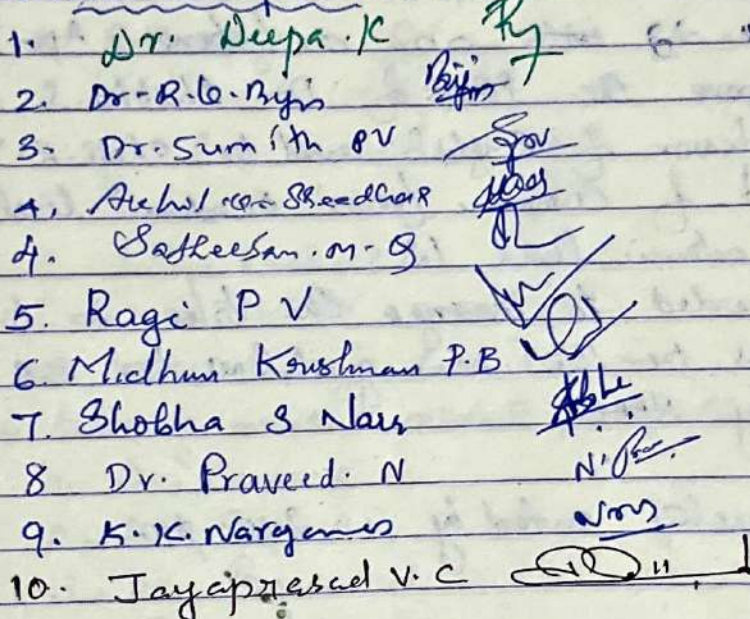 1. Dr. Deepa . K
2. Dr. R. C. Byju Bijin
3. Dr. Sumith PV
4, Sreedhar
4. Satheesan . M - G
5. Ragi P V
6. Midhun Krushnan P.B
7. Shobha S Nair
8 Dr. Praveed. N N.
9. K. K. Narayanan
10. Jayaprasad V. C